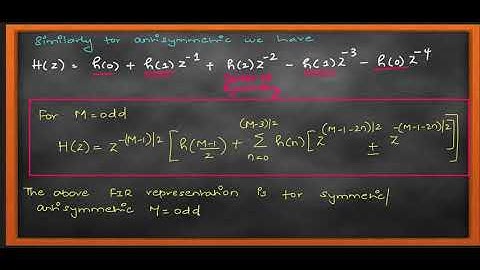 Similarly for antisymmetric we have
H(z) = h(0) + h(1)z^-1 + h(2)z^-2 - h(1)z^-3 - h(0)z^-4
For M=odd
H(z) = z^-(M-1)/2 [h(M-1/2) + Σ_{n=0}^{(M-3)/2} h(n) [z^(M-1-2n)/2 ± z^-(M-1-2n)/2]]
The above FIR representation is for symmetric/
antisymmetric M=odd